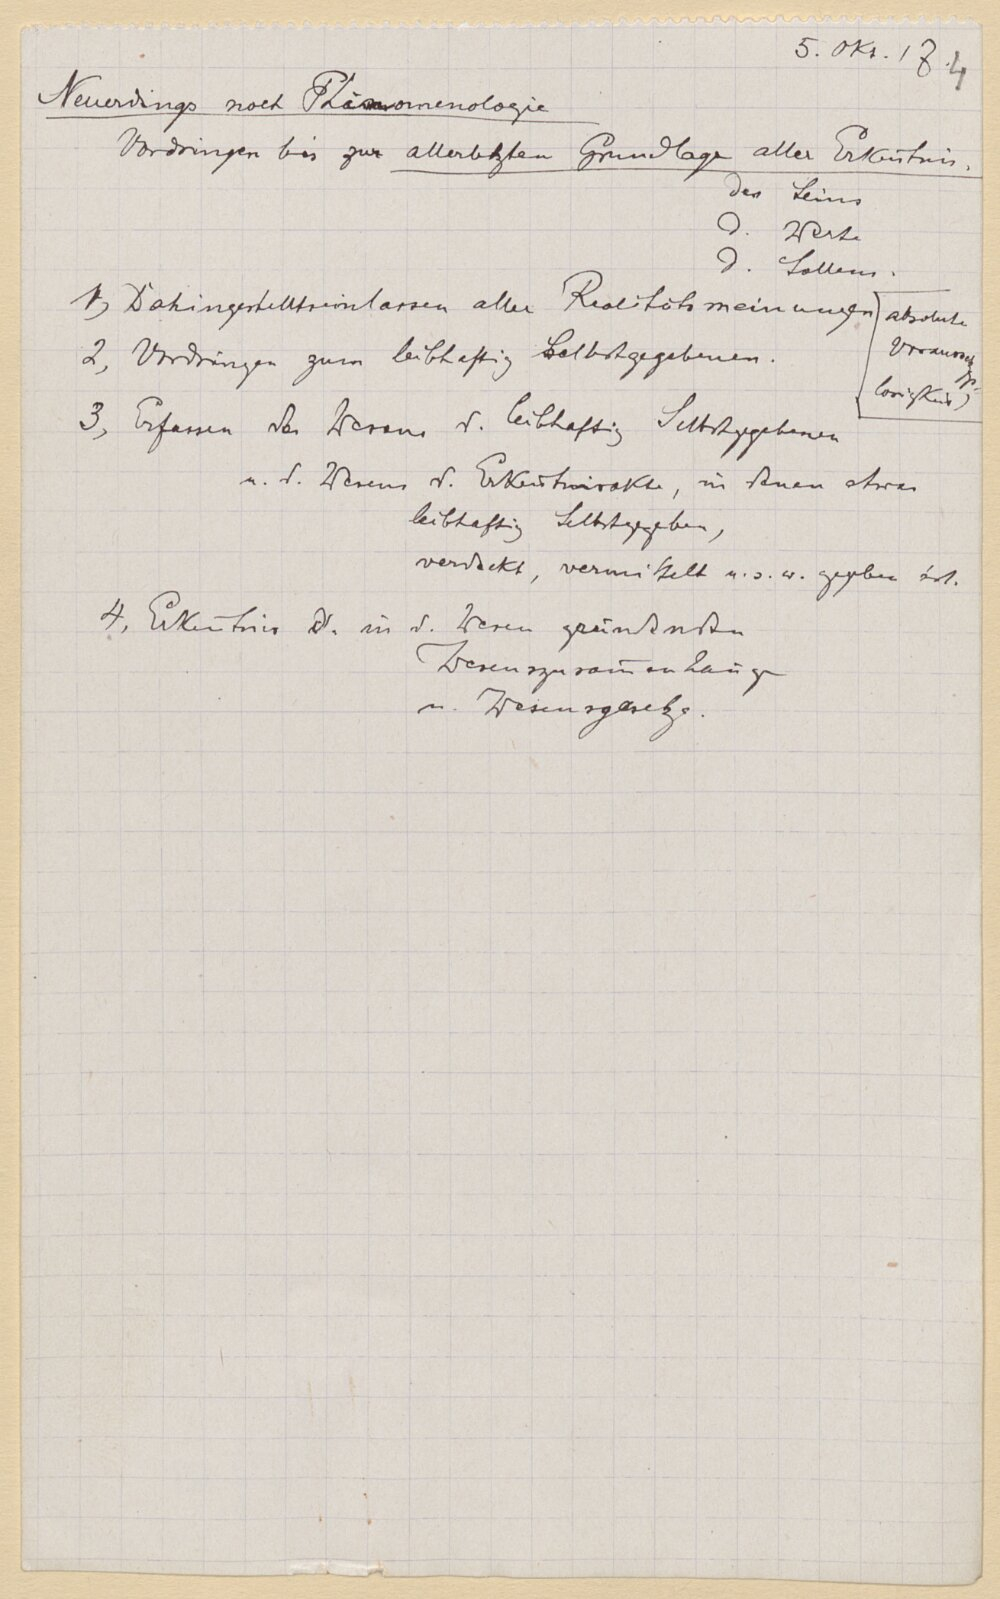 5. Okt. 17. 4
Neuerdings noch Phänomenologie
Vordringen bis zur allerletzten Grundlage aller Erkeñtnis.
des Seins
d. Werte
d. Sollens.
1, Dahingestelltseinlassen aller Realitätsmeinungen
absolute
Voraussetzgs-
losigkeit
2, Vordringen zum leibhaftig Selbstgegebenen.
3, Erfassen des Wesens d. leibhaftig Selbstgegebenen
u. d. Wesens d. Erkeñtnisakte, in denen etwas
leibhaftig Selbstgegeben,
verdeckt, vermittelt u.s.w. gegeben ist.
4, Erkeñtnis d. in d. Wesen gründenden
Wesenszusam̃enhänge
u. Wesensgesetze.